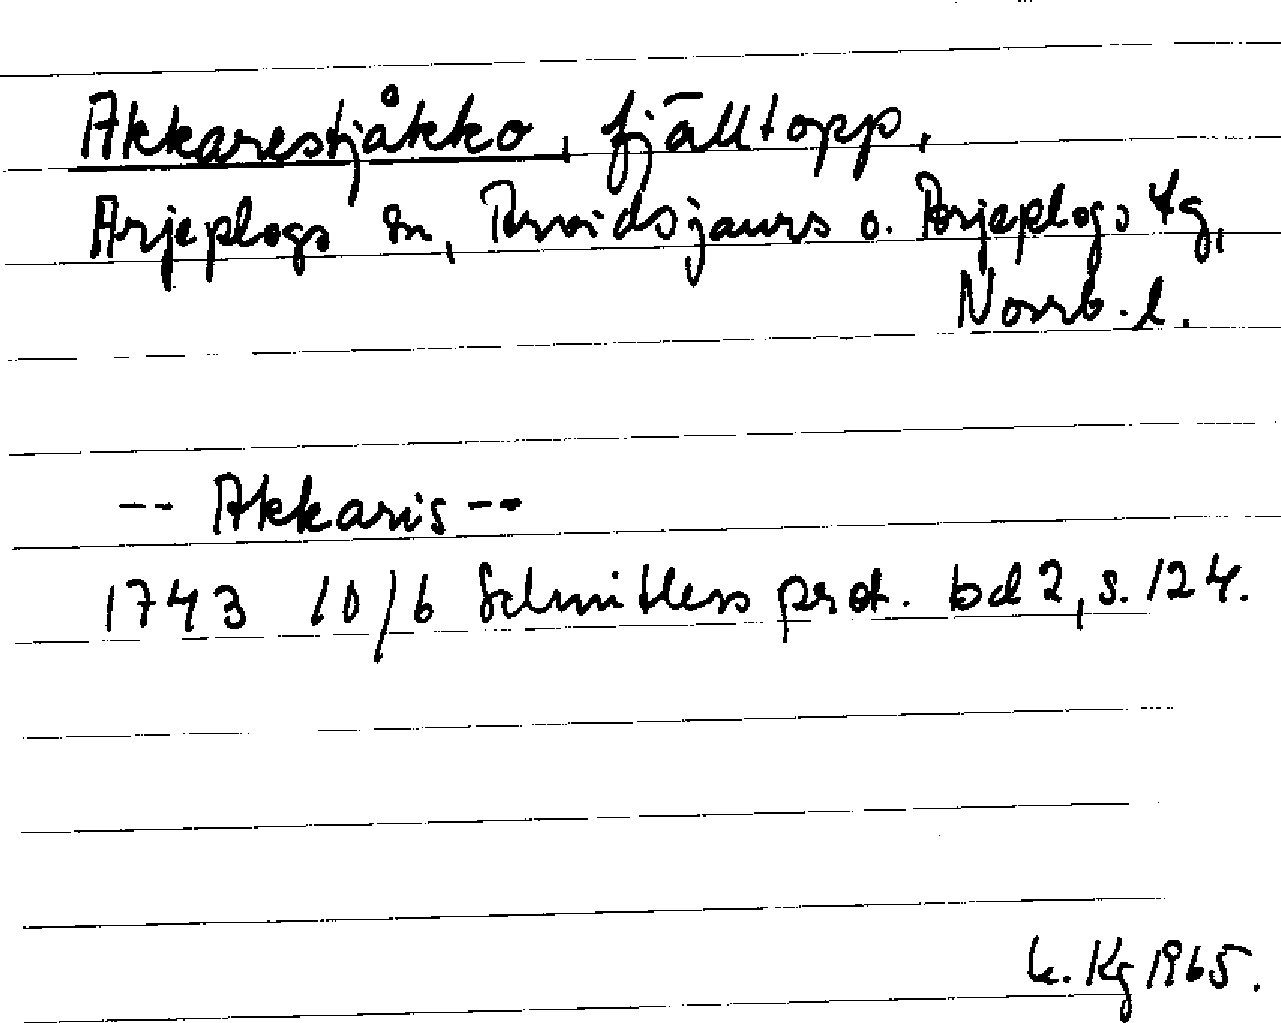 Akkarestjåkko, fjälltopp,
Arjeplogs sn, Arvidsjaurs o. Arjeplogs tg,
Norrb. l.
-- Akkaris --
1743 10/6 Schnitlers prot. bd 2, s. 124.
Kg 1965.